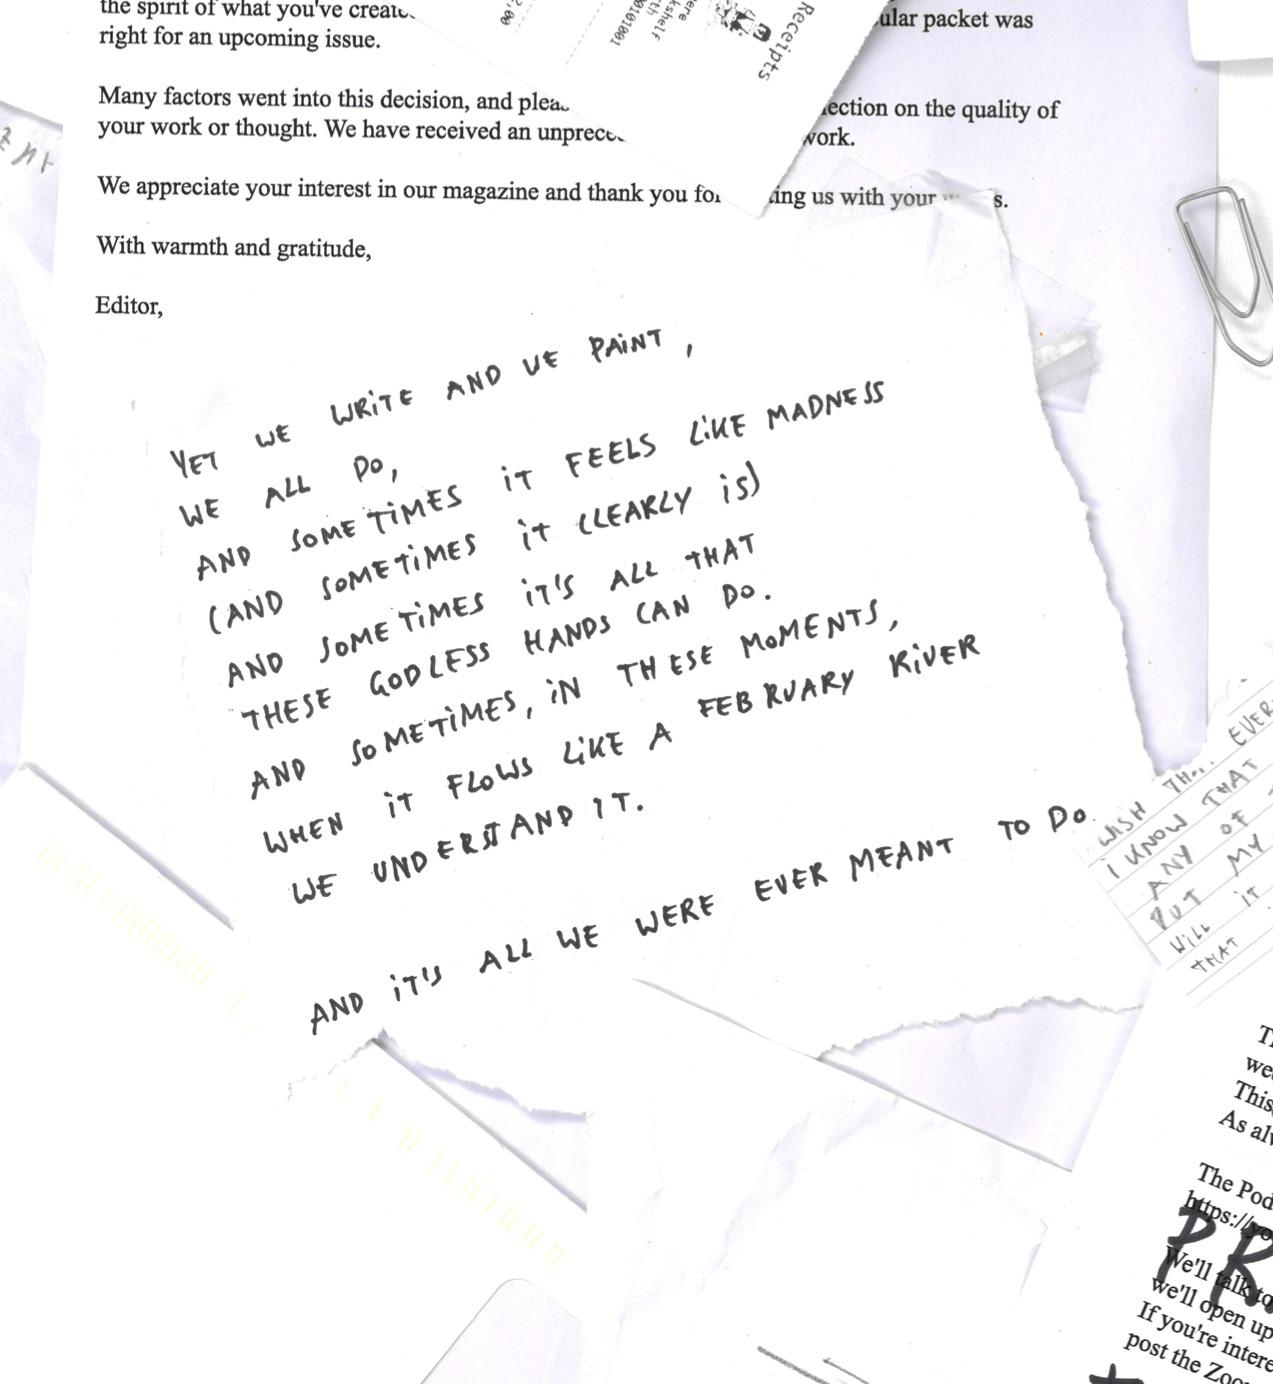 the spirit of what you've
right for an upcoming issue.
ular packet was
Many factors went into this decision, and
ection on the quality of
your work or thought. We have received an
work.
We appreciate your interest in our magazine and thank you for
ing us with your
s.
With warmth and gratitude,
Editor,
Receipts
YET WE WRITE AND WE PAINT,
WE ALL DO,
AND SOMETIMES IT FEELS LIKE MADNESS
(AND SOMETIMES IT CLEARLY IS)
AND SOMETIMES IT'S ALL THAT
THESE GODLESS HANDS CAN DO.
AND SOMETIMES, IN THESE MOMENTS,
WHEN IT FLOWS LIKE A FEBRUARY RIVER
WE UNDERSTAND IT.
AND IT'S ALL WE WERE EVER MEANT TO DO.
EVER
WISH
I KNOW THAT
ANY OF
PUT MY
WILL IT
THAT
we
This
As al
The Pod
https://yo
PR
We'll talk to
we'll open up
If you're intere
post the Zoo